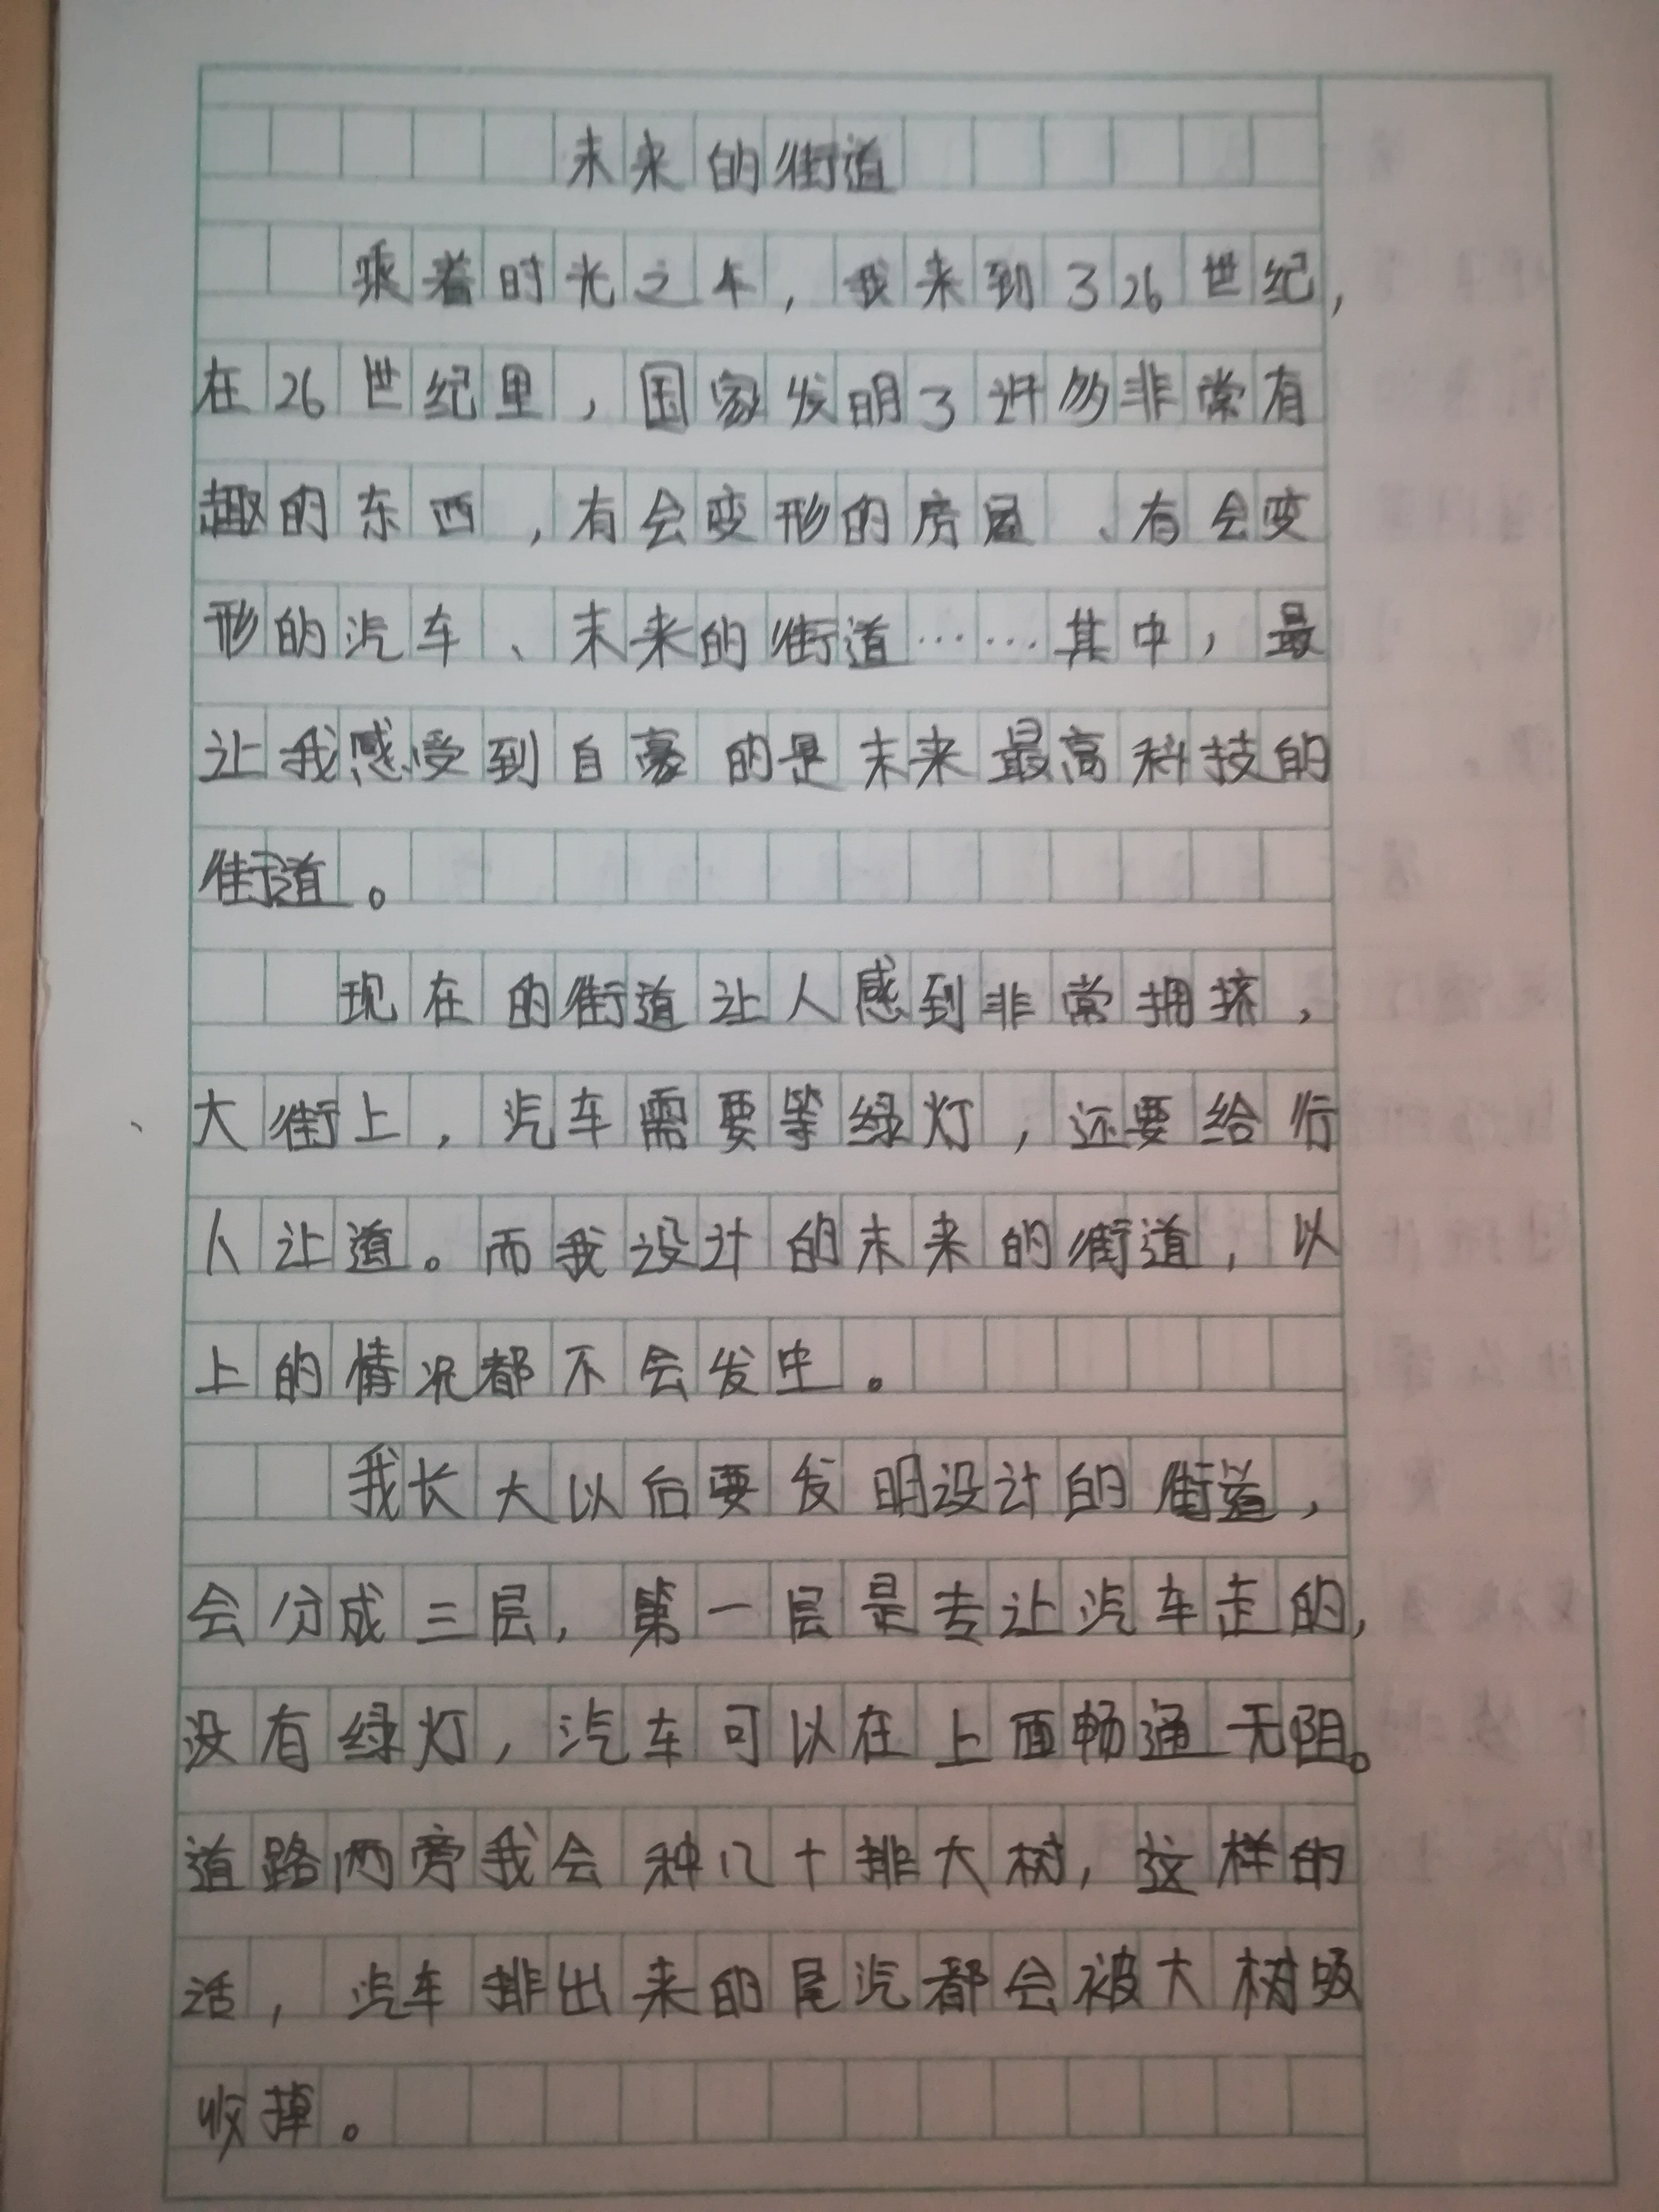 未来的街道
乘着时光之车，我来到了26世纪，
在26世纪里，国家发明了许多非常有
趣的东西，有会变形的房屋、有会变
形的汽车、未来的街道……其中，最
让我感受到自豪的是未来最高科技的
街道。
现在的街道让人感到非常拥挤，
大街上，汽车需要等绿灯，还要给行
人让道。而我设计的未来的街道，以
上的情况都不会发生。
我长大以后要发明设计的街道，
会分成三层，第一层是专让汽车走的，
没有绿灯，汽车可以在上面畅通无阻。
道路两旁我会种几十排大树，这样的
话，汽车排出来的尾汽都会被大树吸
收掉。